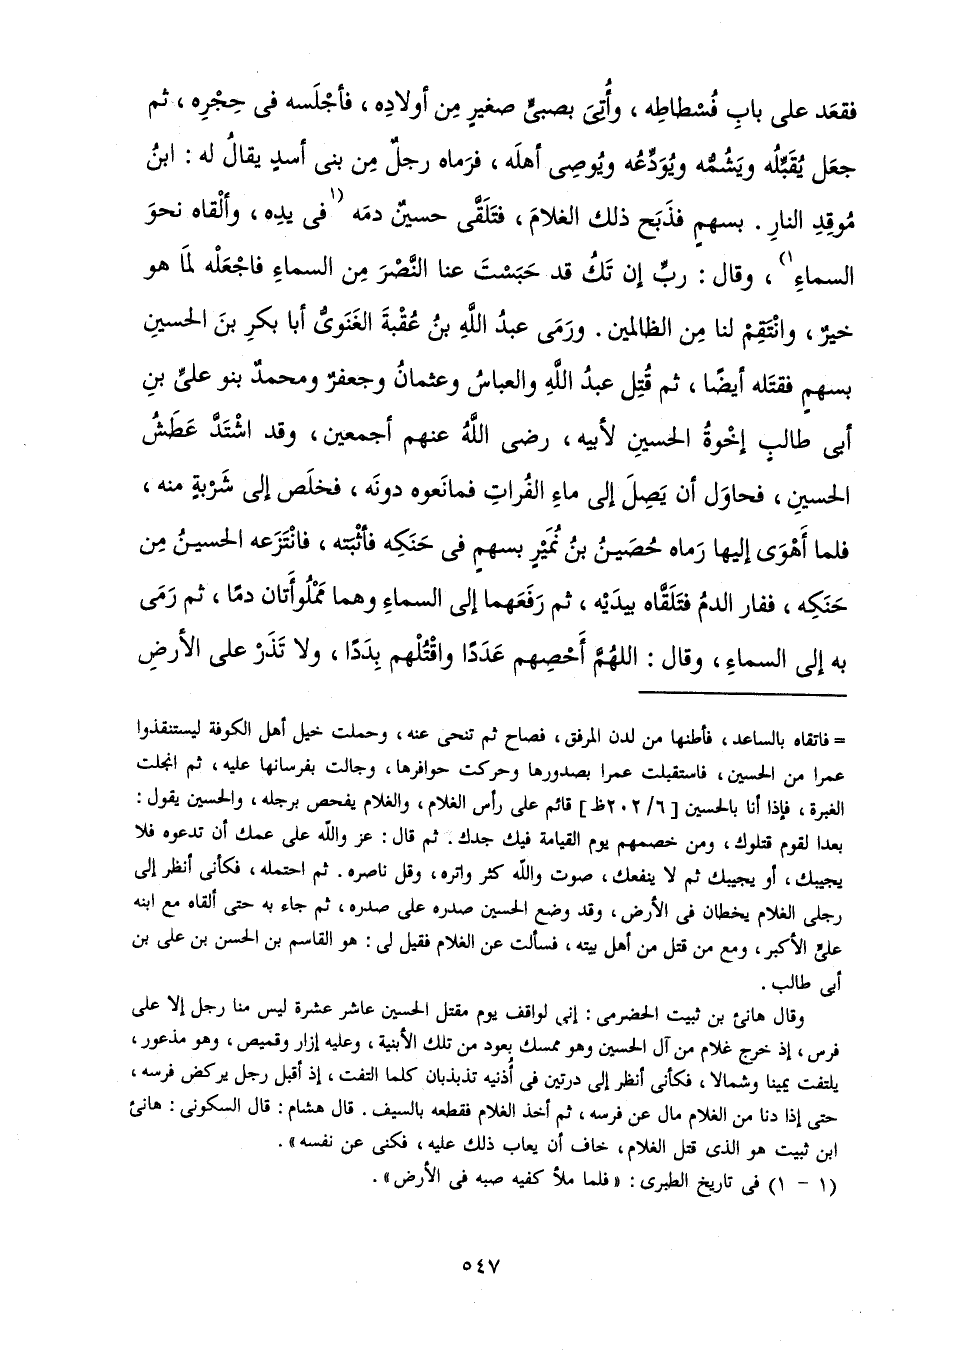 فقعَد على بابِ فُسْطاطِه ، وأُتِىَ بصبىٍّ صغيرٍ مِن أولادِه ، فأجْلَسه فى حِجْرِه ، ثم
جعَل يُقَبِّلُه ويَشُمُّه ويُوَدِّعُه ويُوصِى أهلَه ، فرَماه رجلٌ مِن بنى أسدٍ يقالُ له : ابنُ
مُوقِدِ النارِ . بسهمٍ فذَبَح ذلك الغلامَ ، فتَلَقَّى حسينٌ دمَه (١ فى يدِه ، وألْقاه نحوَ
السماءِ ١) ، وقال : ربِّ إن تَكُ قد حَبَسْتَ عنا النَّصْرَ مِن السماءِ فاجْعَلْه لمَا هو
خيرٌ ، وانْتَقِمْ لنا مِن الظالمين . ورَمَى عبدُ اللَّهِ بنُ عُقْبةَ الغَنَوِىُّ أبا بكرِ بنَ الحسينِ
بسهمٍ فقتَله أيضًا ، ثم قُتِل عبدُ اللَّهِ والعباسُ وعثمانُ وجعفرٌ ومحمدٌ بنو علىِّ بنِ
أبى طالبٍ إخْوةُ الحسينِ لأبيه ، رضى اللَّهُ عنهم أجمعين ، وقد اشْتَدَّ عَطَشُ
الحسينِ ، فحاوَل أن يَصِلَ إلى ماءِ الفُراتِ فمانَعوه دونَه ، فخلَص إلى شَرْبةٍ منه ،
فلما أَهْوَى إليها رَماه حُصَينُ بنُ نُمَيْرٍ بسهمٍ فى حَنَكِه فأثْبَته ، فانْتَزَعه الحسينُ مِن
حَنَكِه ، ففار الدمُ فتَلَقَّاه بيدَيْه ، ثم رَفَعَهما إلى السماءِ وهما مَمْلُوأَتان دمًا ، ثم رَمَى
به إلى السماءِ ، وقال : اللهُمَّ أَحْصِهم عَدَدًا واقْتُلْهم بِدَدًا ، ولا تَذَرْ على الأرضِ
= فاتقاه بالساعد ، فأطنها من لدن المرفق ، فصاح ثم تنحى عنه ، وحملت خيل أهل الكوفة ليستنقذوا
عمرا من الحسين ، فاستقبلت عمرا بصدورها وحركت حوافرها ، وجالت بفرسانها عليه ، ثم انجلت
الغبرة ، فإذا أنا بالحسين [ ٦/ ٢٠٢ظ ] قائم على رأس الغلام ، والغلام يفحص برجله ، والحسين يقول :
بعدا لقوم قتلوك ، ومن خصمهم يوم القيامة فيك جدك . ثم قال : عز والله على عمك أن تدعوه فلا
يجيبك ، أو يجيبك ثم لا ينفعك ، صوت والله كثر واتره ، وقل ناصره . ثم احتمله ، فكأنى أنظر إلى
رجلى الغلام يخطان فى الأرض ، وقد وضع الحسين صدره على صدره ، ثم جاء به حتى ألقاه مع ابنه
علىّ الأكبر ، ومع من قتل من أهل بيته ، فسألت عن الغلام فقيل لى : هو القاسم بن الحسن بن على بن
أبى طالب .
وقال هانئ بن ثبيت الحضرمى : إنى لواقف يوم مقتل الحسين عاشر عشرة ليس منا رجل إلا على
فرس ، إذ خرج غلام من آل الحسين وهو ممسك بعود من تلك الأبنية ، وعليه إزار وقميص ، وهو مذعور ،
يلتفت يمينا وشمالا ، فكأنى أنظر إلى درتين فى أذنيه تذبذبان كلما التفت ، إذ أقبل رجل يركض فرسه ،
حتى إذا دنا من الغلام مال عن فرسه ، ثم أخذ الغلام فقطعه بالسيف . قال هشام : قال السكونى : هانئ
ابن ثبيت هو الذى قتل الغلام ، خاف أن يعاب ذلك عليه ، فكنى عن نفسه » .
(١ - ١) فى تاريخ الطبرى : « فلما ملأ كفيه صبه فى الأرض » .
٥٤٧